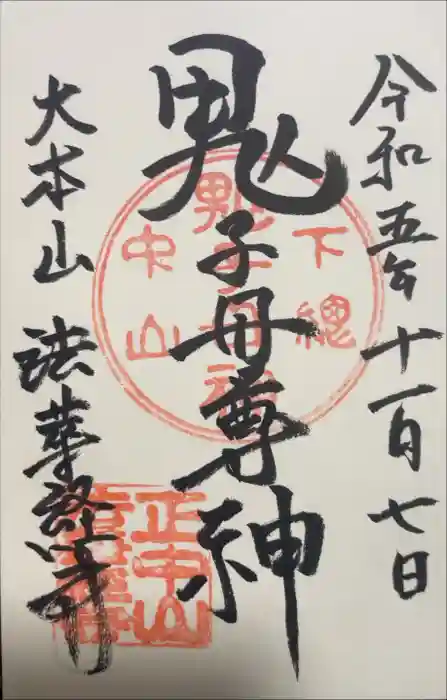 令和五年十一月七日
鬼子母尊神
下總
鬼子母神
中山
大本山 法華経寺
正中山